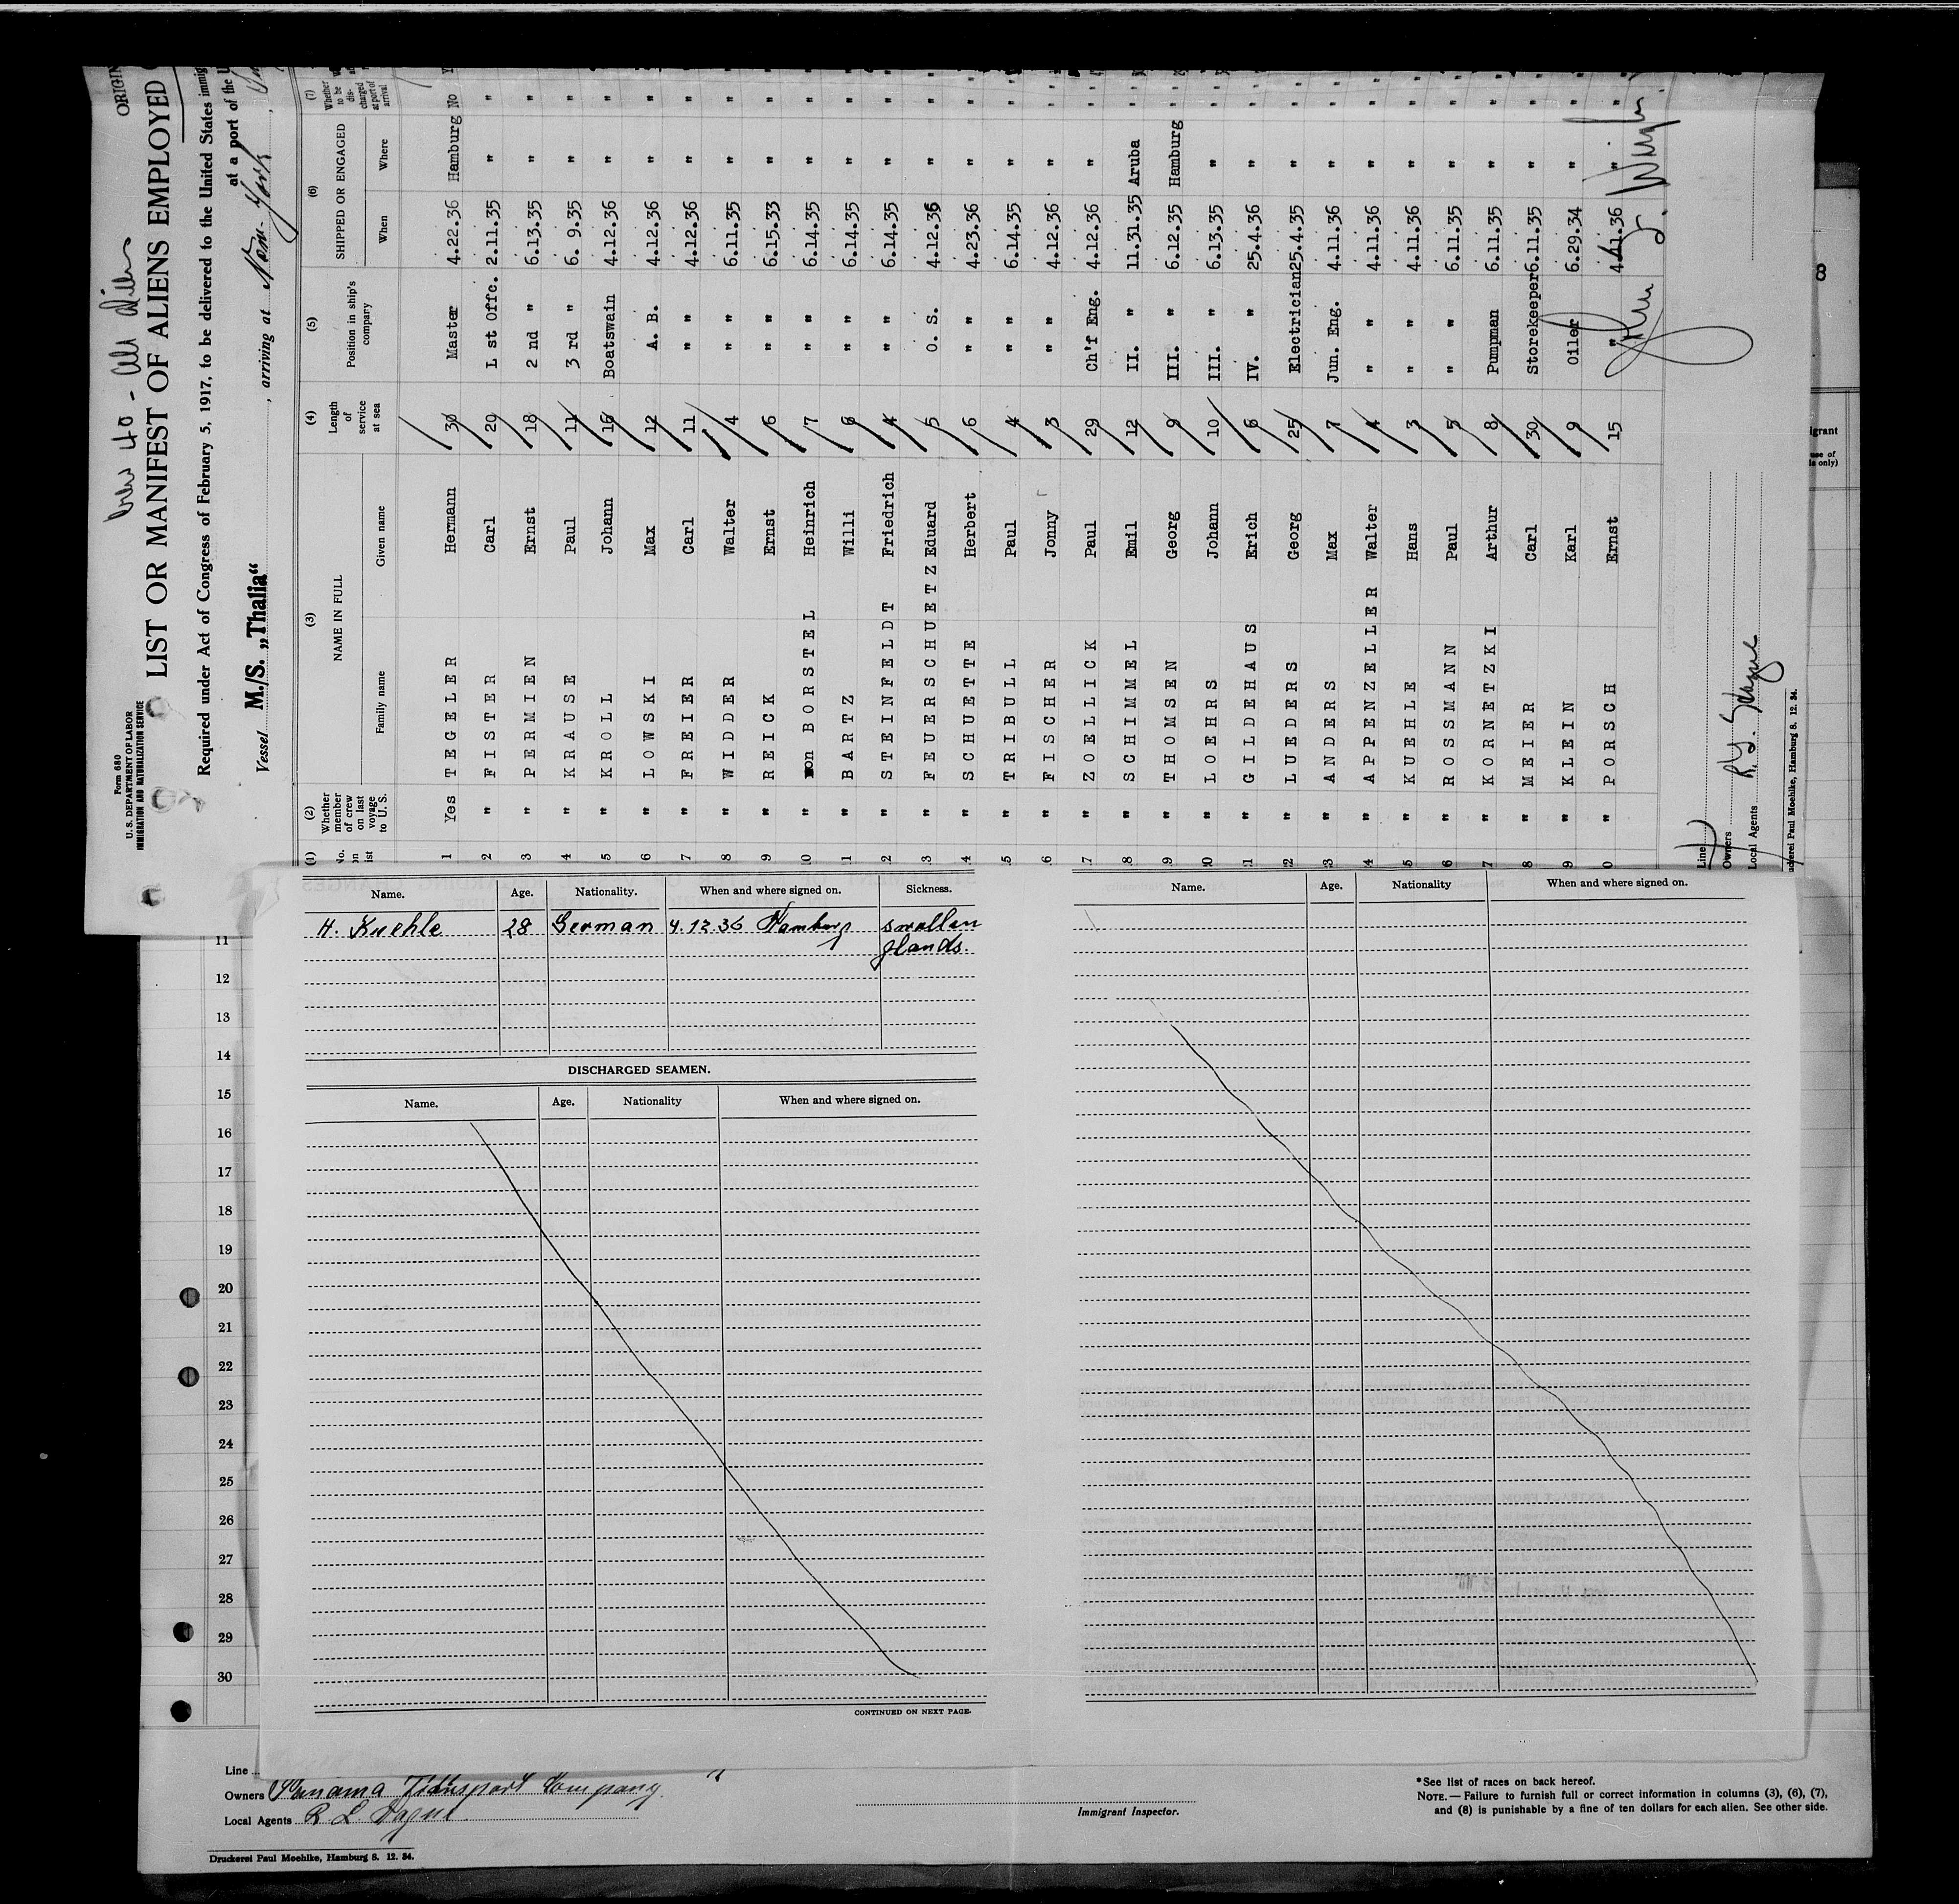 Form 680
U. S. DEPARTMENT OF LABOR
IMMIGRATION AND NATURALIZATION SERVICE
ORIGIN
LIST OR MANIFEST OF ALIENS EMPLOYED
Required under Act of Congress of February 5, 1917, to be delivered to the United States immig
at a port of the U
Vessel M./S. „Thalia“ , arriving at New-York ,
(1) (2) (3) (4) (5) (6) (7)
No. on list Whether member of crew on last voyage to U. S. NAME IN FULL Length of service at sea Position in ship's company SHIPPED OR ENGAGED Whether to be discharged at port of arrival
Family name Given name When Where
1 Yes TEGELER Hermann 30 Master 4.22.36 Hamburg No
2 " FISTER Carl 20 L st Offc. 2.11.35 " "
3 " PERMIEN Ernst 18 2 nd " 6.13.35 " "
4 " KRAUSE Paul 11 3 rd " 6. 9.35 " "
5 " KROLL Johann 16 Boatswain 4.12.36 " "
6 " LOWSKI Max 12 A. B. 4.12.36 " "
7 " FREIER Carl 11 " " 4.12.36 " "
8 " WIDDER Walter 4 " " 6.11.35 " "
9 " REICK Ernst 6 " " 6.15.33 " "
0 " von BORSTEL Heinrich 7 " " 6.14.35 " "
1 " BARTZ Willi 6 " " 6.14.35 " "
2 " STEINFELDT Friedrich 4 " " 6.14.35 " "
3 " FEUERSCHUETZ Eduard 5 O. S. 4.12.36 " "
4 " SCHUETTE Herbert 6 " " 4.23.36 " "
5 " TRIBULL Paul 4 " " 6.14.35 " "
6 " FISCHER Jonny 3 " " 4.12.36 " "
7 " ZOELLICK Paul 29 Ch'f Eng. 4.12.36 " "
8 " SCHIMMEL Emil 12 II. " 11.31.35 Aruba "
9 " THOMSEN Georg 9 III. " 6.12.35 Hamburg "
0 " LOEHRS Johann 10 III. " 6.13.35 " "
1 " GILDEHAUS Erich 6 IV. " 25.4.36 " "
2 " LUEDERS Georg 25 Electrician 25.4.35 " "
3 " ANDERS Max 7 Jun. Eng. 4.11.36 " "
4 " APPENZELLER Walter 4 " " 4.11.36 " "
5 " KUEHLE Hans 3 " " 4.11.36 " "
6 " ROSSMANN Paul 5 " " 6.11.35 " "
7 " KORNETZKI Arthur 8 Pumpman 6.11.35 " "
8 " MEIER Carl 30 Storekeeper 6.11.35 " "
9 " KLEIN Karl 9 Oiler 6.29.34 " "
0 " PORSCH Ernst 15 " 4.11.36 " "
Line
Owners
Local Agents
uckerei Paul Moehlke, Hamburg 8. 12. 34.
8
igrant
use of
ls only)
Name. Age. Nationality. When and where signed on. Sickness.
H. Kuehle 28 German 4.12.36 Hamburg swollen
glands.
DISCHARGED SEAMEN.
Name. Age. Nationality When and where signed on.
CONTINUED ON NEXT PAGE.
Name. Age. Nationality When and where signed on.
11
12
13
14
15
16
17
18
19
20
21
22
23
24
25
26
27
28
29
30
Line
Owners Panama Transport Company.
Local Agents R L Hague
Druckerei Paul Moehlke, Hamburg 8. 12. 34.
Immigrant Inspector.
*See list of races on back hereof.
NOTE.—Failure to furnish full or correct information in columns (3), (6), (7),
and (8) is punishable by a fine of ten dollars for each alien. See other side.